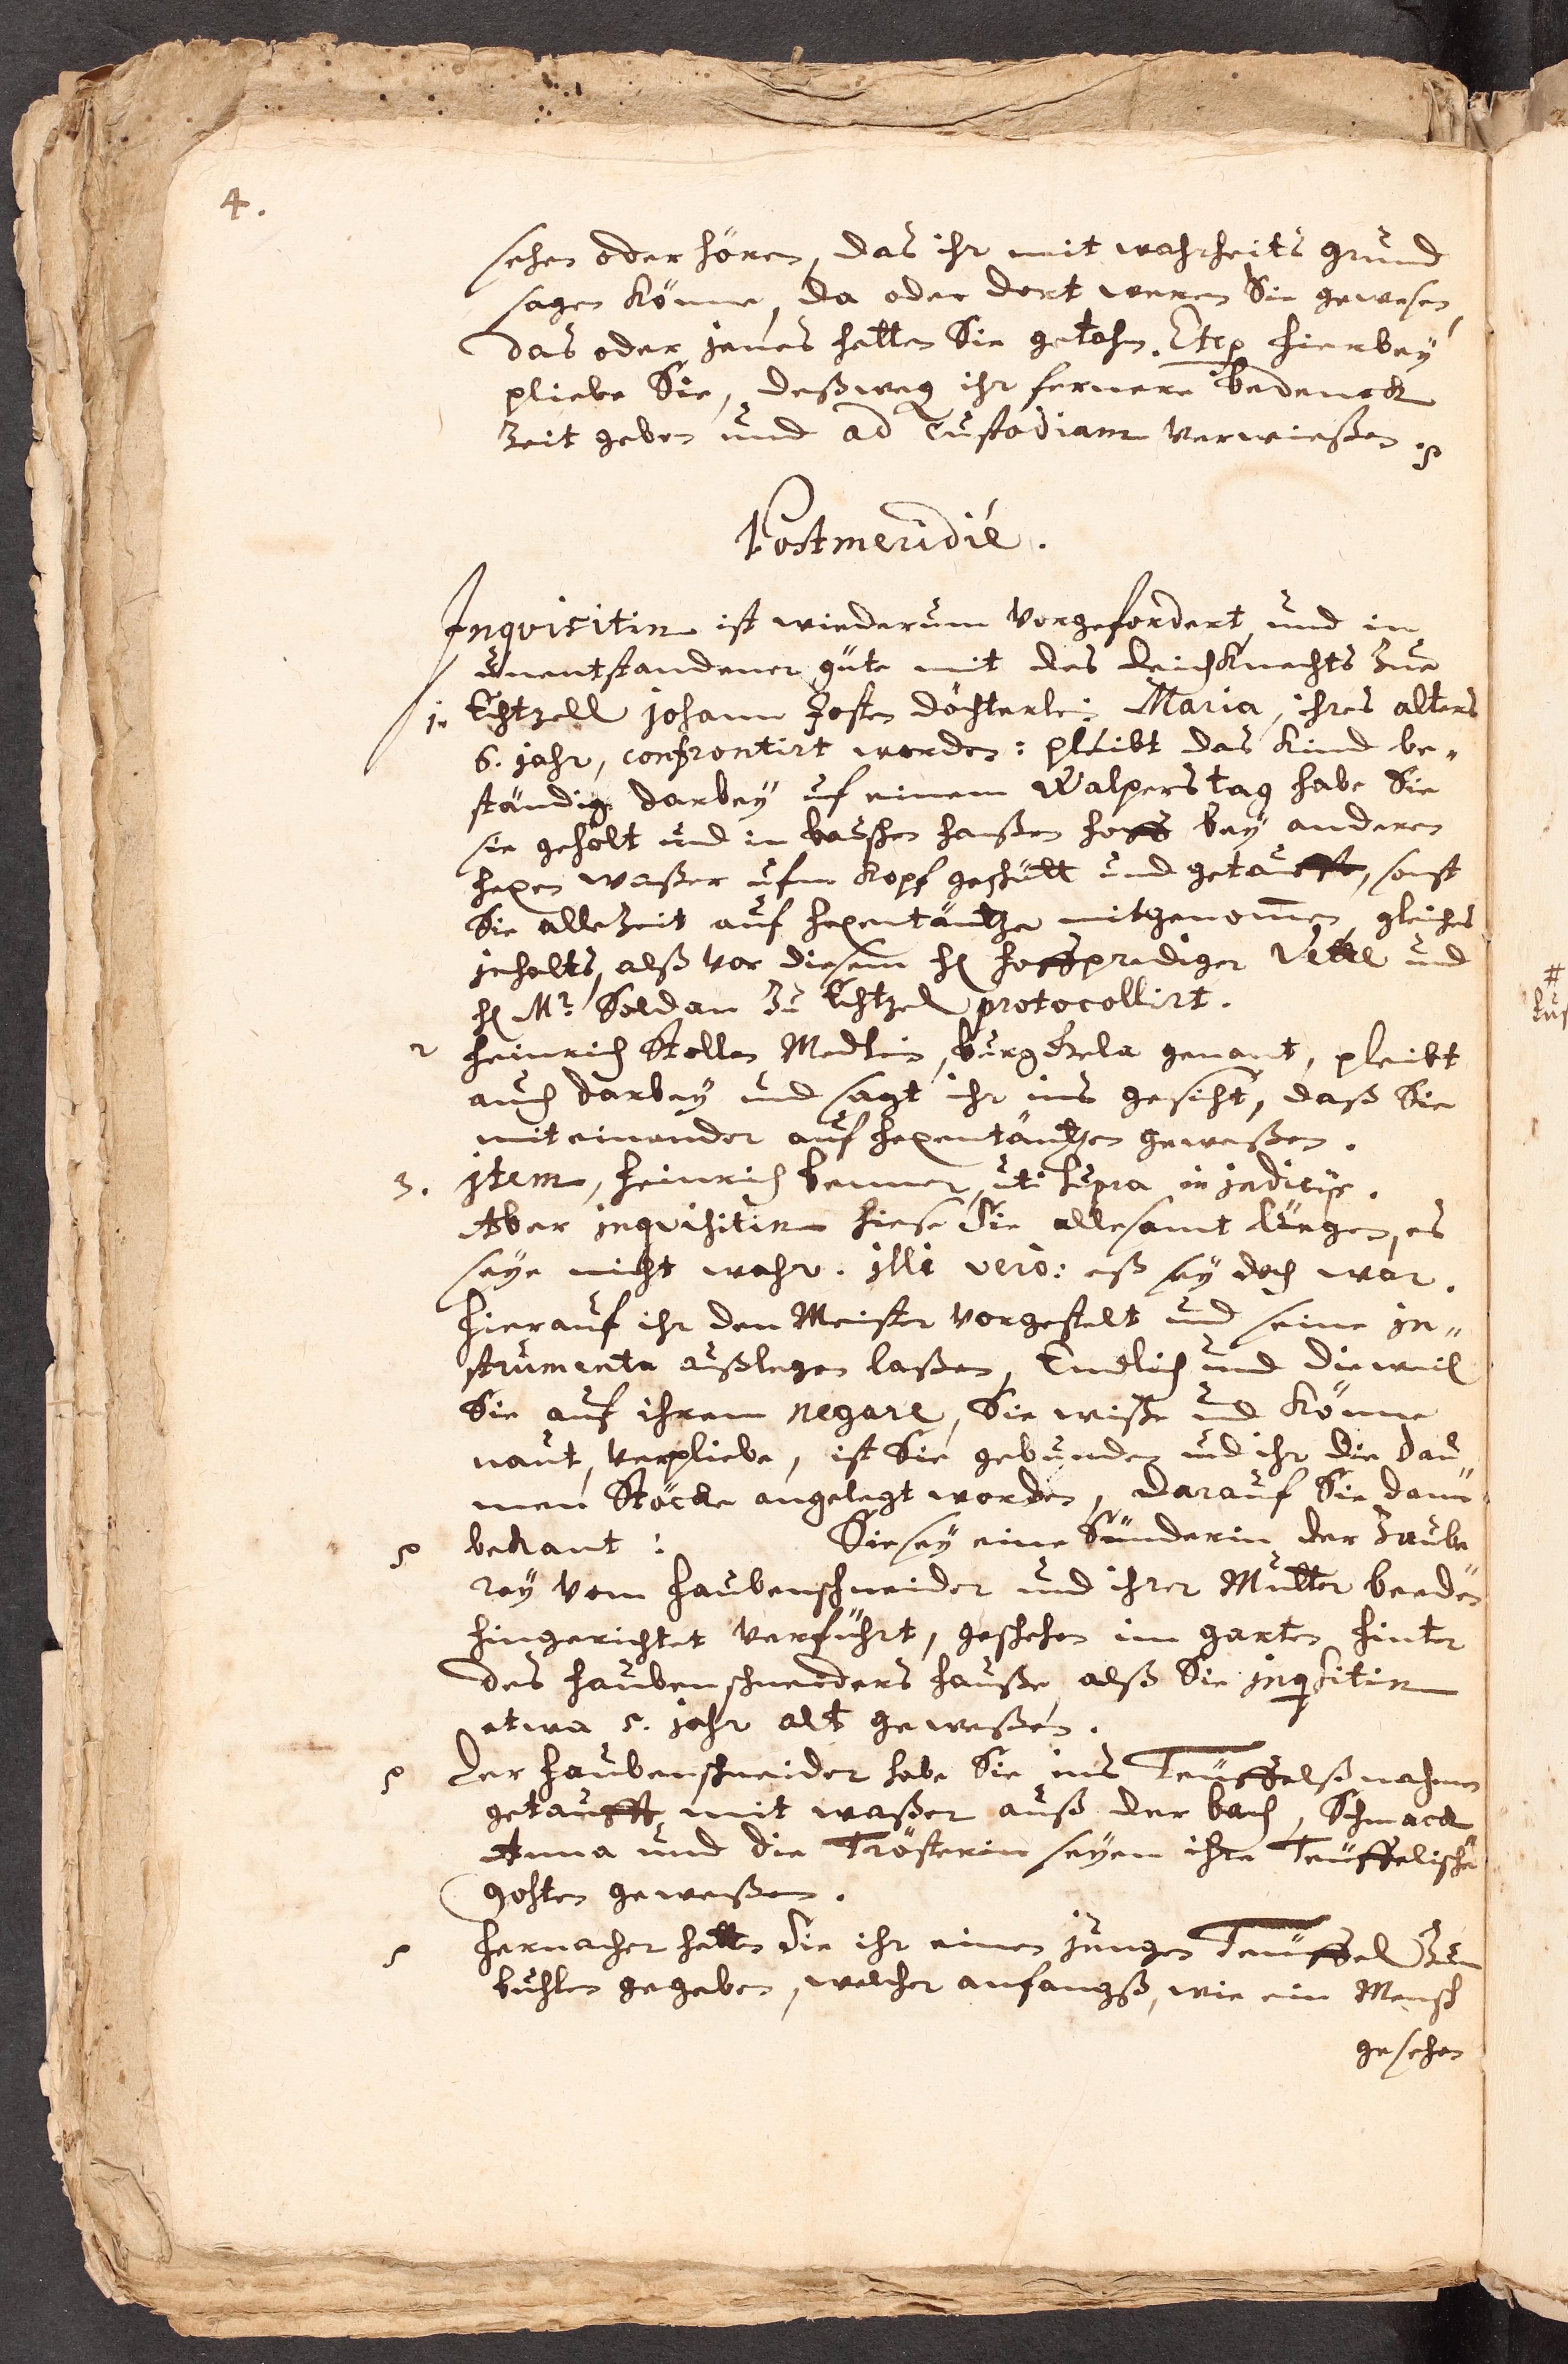 4.
sehen oder hören, das ihr mit wahrheits grund
sagen könne, da oder dort weren Sie gewesen,
das oder jenes hetten Sie getahn. Etc. hierbey
pliebe Sie, deßweg ihr fernere bedenck
Zeit geben und ad Custodiam verwießen.
Postmeridie.
Inquisitin ist wiederum vorgefordert und in
unentstandener güte mit des Teichknechts zue
1. Echtzell Johann Josten döchterlein Maria, ihres alters
6. jahr, confrontirt worden: pleibt das Kind be„
ständig darbey uf einem Walpers tag habe Sie
sie geholt und in hanßen hoff bey anderen
hexen waßer ufm Kopf geschütt und getaufft, sonst
Sie allezeit auf hexentäntze mitgenom̄en, gleiches
jnhalts, alß vor diesem H. hoffprediger und
H. Mr. Soldan zu Echtzel protocollirt.
2 Heinrich Stollen Medlein, genant, pleibt
auch darbey und sagt ihr ins gesicht, daß Sie
miteinander auf hexentäntzen geweßen.
3. jtem, Heinrich benner, uti supra in jndicijs.
Aber jnquisitin hiese Sie allesamt Lügen, es
seye nicht wahr. jlli vero: eß sey doch war.
Hierauf ihr den Meister vorgestelt und seine jn„
strumenta außlegen laßen, Endlich und dieweil
Sie auf ihrem negare, Sie wiße und könne
naut, verpliebe, ist Sie gebunden und ihr die dau„
men Stöcke angelegt worden, darauf Sie dann
bekant: Sie sey eine Sünderin, der Zaube
rey vom Haubenschneider und ihrer Mutter beeden
hingerichtet verführt, geschehen im garten hinter
des Haubenschneiders hauße, alß Sie jnqsitin
etwa 5. jahr alt geweßen.
Der Haubenschneider habe Sie ins Teuffelß nahmen
getaufft mit waßer auß der bach, Schmack
Anna und die Trösterin seyen ihre Teuffelische
gohten geweßen.
Hernacher hetten Sie ihr einen jungen Teuffel zum
buhlen gegeben, welcher anfangß, wie ein Mensch
gesehen
#